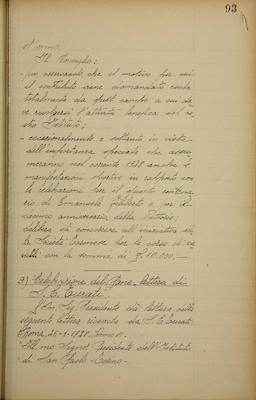 93
Il Consiglio:
- pur osservando che il motivo per cui
il contributo viene domandato esula
totalmente da quel campo a cui de-
ve rivolgersi l'attività benefica del no-
stro Istituto;
- eccezionalmente e soltanto in vista
dell'importanza speciale che assu-
meranno nel corrente 1928 anche le
manifestazioni sportive in rapporto con
la celebrazione per il quarto centena-
rio di Emanuele Filiberto e per il
decimo anniversario della Vittoria;
delibera di concorrere all'iniziativa del-
la Società Torinese per le corse di ca-
valli con la somma di £ 10.000,-
9) Celebrazione del Pane - lettera di
S. E. Turati.
L'On. Sig. Presidente dà lettura della
seguente lettera ricevuta da S. E. Turati:
"Roma, 25-1-1928. Anno VI.
"Ill.mo Signor Presidente dell'Istituto
di San Paolo - Torino.